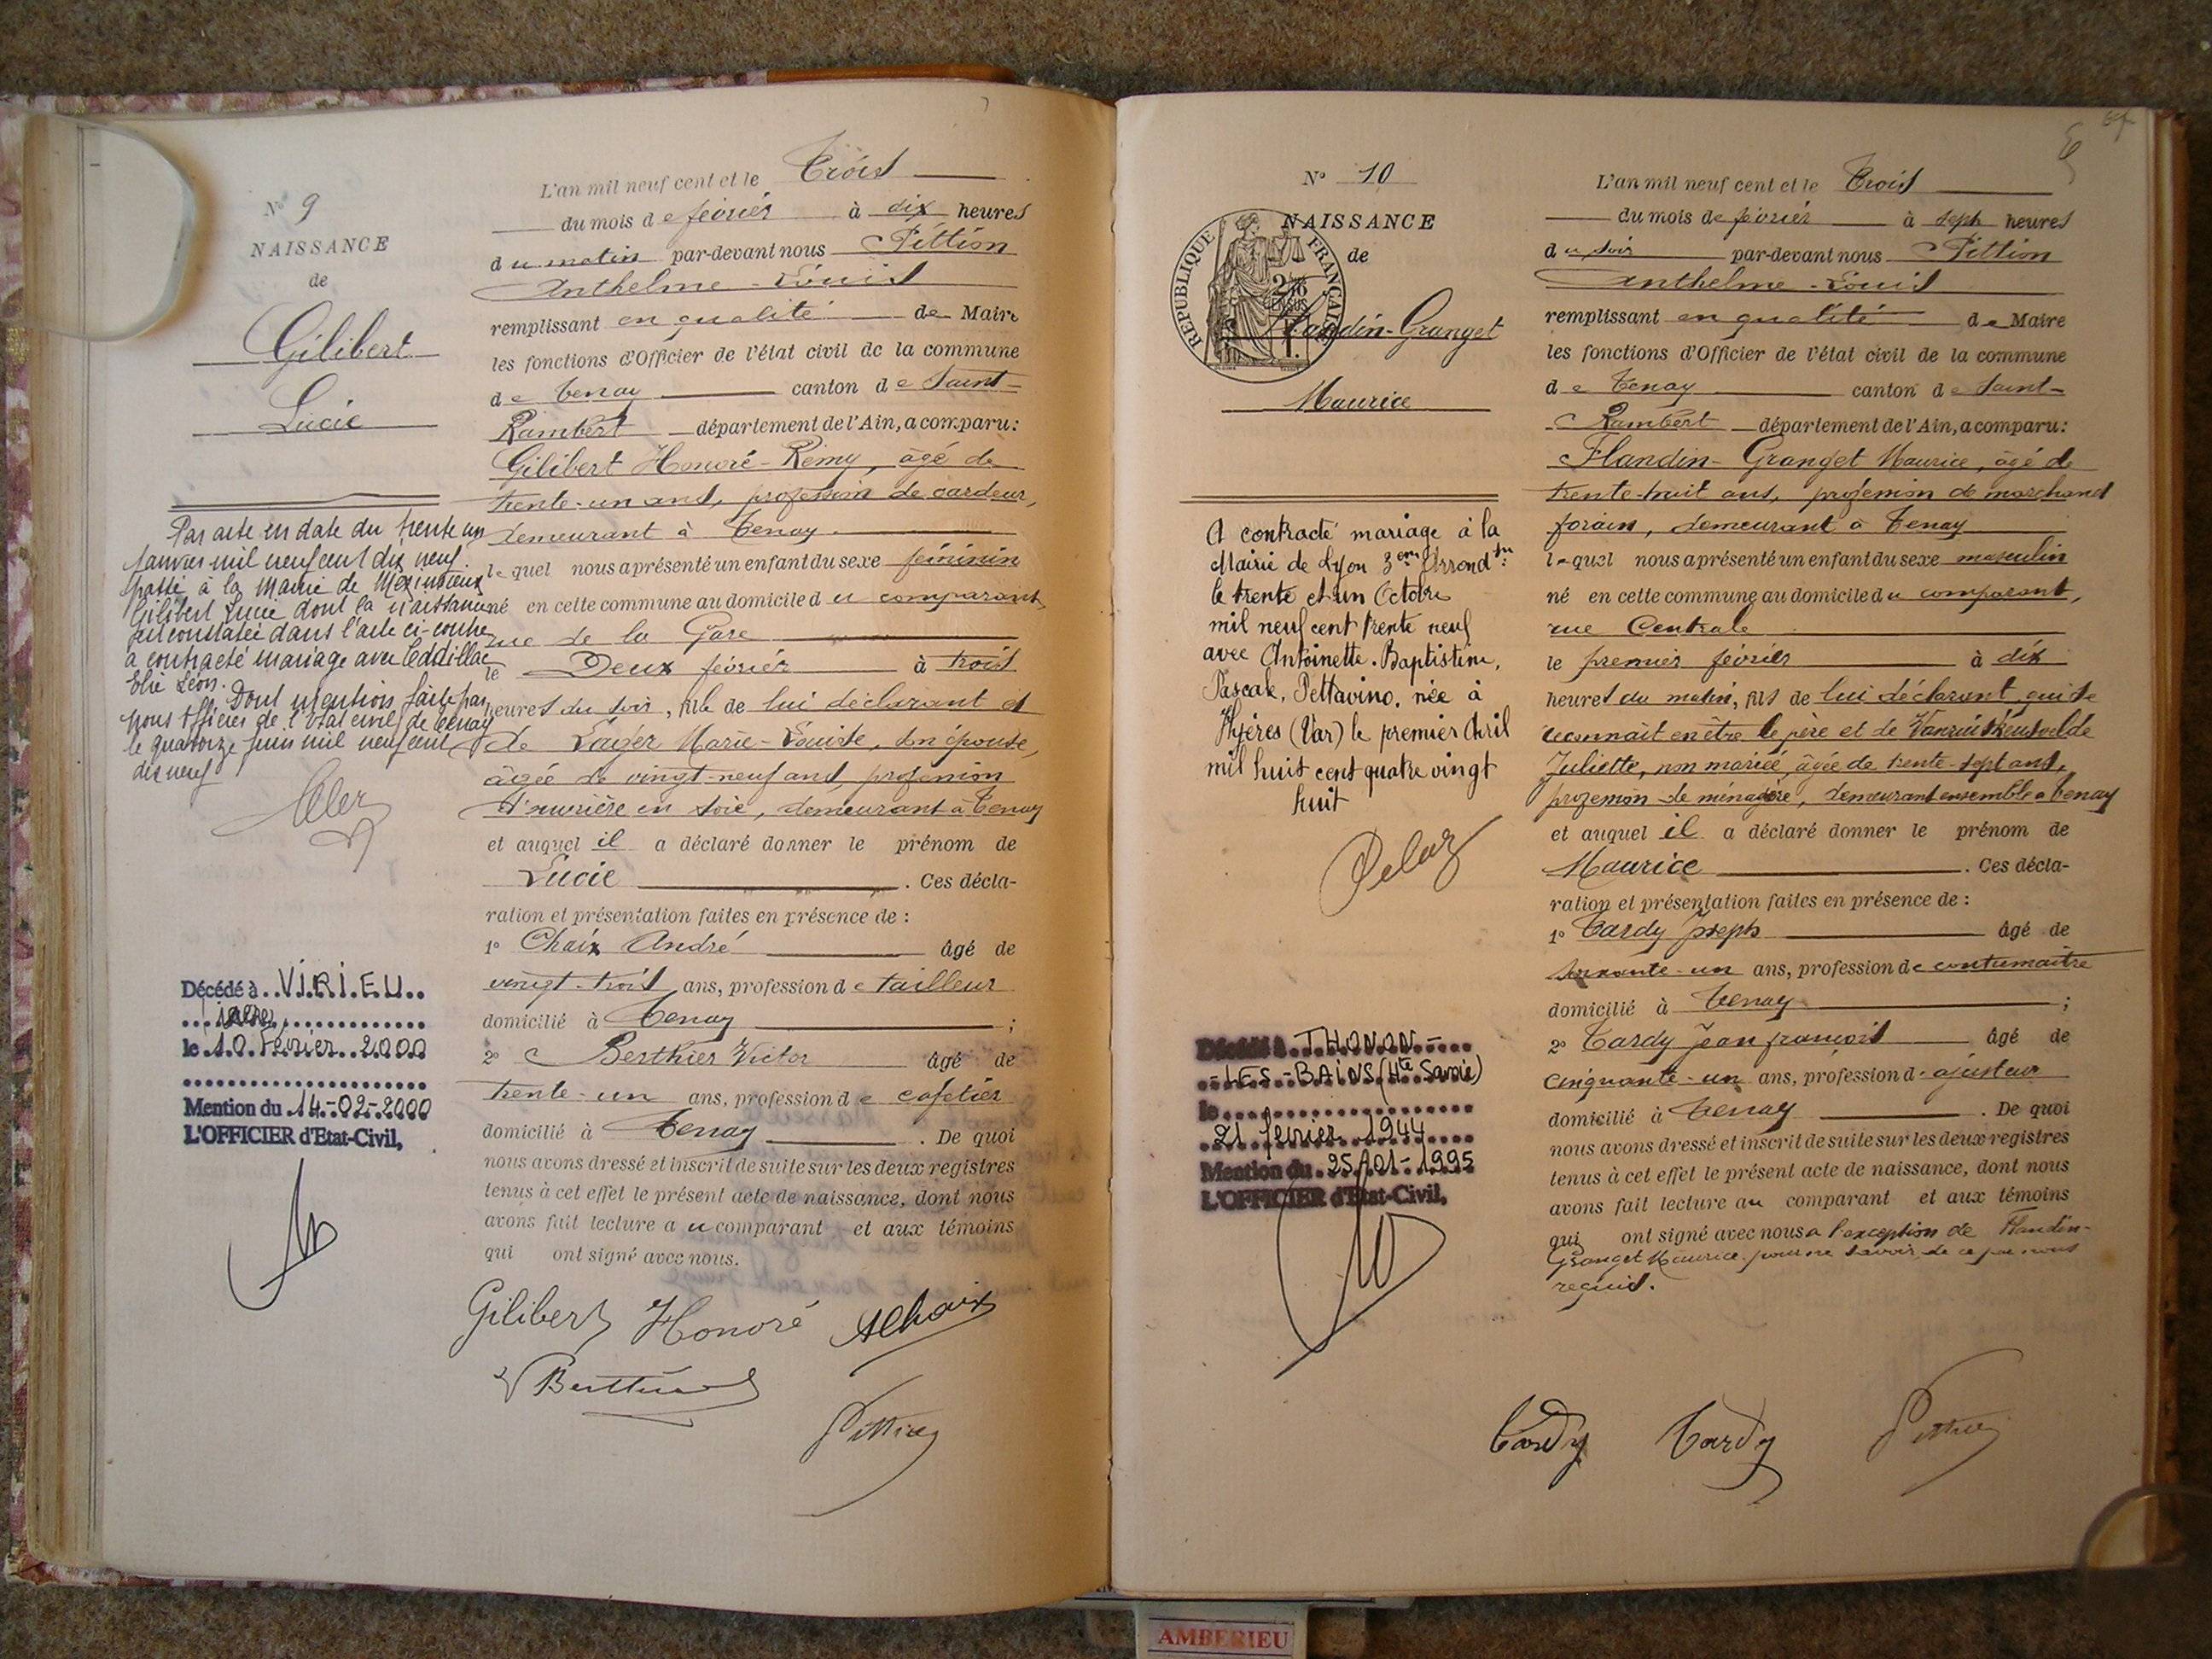 N° 9
NAISSANCE
de
Gilibert
Lucie
Par acte en date du trente un
Janvier mil neuf cent dix neuf
passé à la Mairie de Meximieux
Gilibert Lucie dont la naissance
est constatée dans l'acte ci-contre
a contracté mariage avec
Elie Léon.
Dont mention faite par
nous officier de l'état civil de Tenay
le quatorze juin mil neuf cent
dix neuf
Décédé à VIRIEU
le 10 Février 2000
Mention du 14-02-2000
L'OFFICIER d'Etat-Civil,
L'an mil neuf cent et le Trois
du mois de février à dix heures
du matin par-devant nous Pittion
Anthelme-Louis
remplissant en qualité de Maire
les fonctions d'Officier de l'état civil de la commune
de Tenay canton de Saint-
Rambert département de l'Ain, a comparu:
Gilibert Honoré-Rémy, âgé de
trente-un ans, profession de cardeur,
demeurant à Tenay
lequel nous a présenté un enfant du sexe féminin
né en cette commune au domicile du comparant,
rue de la Gare
le Deux février à trois
heures du soir, fille de lui déclarant et
de Layer Marie-Louise, son épouse,
âgée de vingt-neuf ans, profession
d'ouvrière en soie, demeurant à Tenay
et auquel il a déclaré donner le prénom de
Lucie . Ces décla-
ration et présentation faites en présence de :
1° Chaix André âgé de
vingt-trois ans, profession de tailleur
domicilié à Tenay ;
2° Berthier Victor âgé de
trente-un ans, profession de cafetier
domicilié à Tenay . De quoi
nous avons dressé et inscrit de suite sur les deux registres
tenus à cet effet le présent acte de naissance, dont nous
avons fait lecture au comparant et aux témoins
qui ont signé avec nous.
Gilibert Honoré AChaix
Berthier
Pittion
N° 10
NAISSANCE
de
REPUBLIQUE FRANÇAISE
Flandin-Granget
Maurice
A contracté mariage à la
Mairie de Lyon 3em Arrondt
le trente et un Octobre
mil neuf cent trente neuf
avec Antoinette. Baptistine,
Pascale, Pettavino, née à
Hyères (Var) le premier Avril
mil huit cent quatre vingt
huit
Delaz
Décédé à THONON-
-LES-BAINS (Hte Savoie)
le
21 février 1944
Mention du 25/01-1995
L'OFFICIER d'Etat-Civil,
L'an mil neuf cent et le Trois
du mois de février à sept heures
du soir par-devant nous Pittion
Anthelme-Louis
remplissant en qualité de Maire
les fonctions d'Officier de l'état civil de la commune
de Tenay canton de Saint-
Rambert département de l'Ain, a comparu:
Flandin-Granget Maurice, âgé de
trente-huit ans, profession de marchand
forain, demeurant à Tenay
lequel nous a présenté un enfant du sexe masculin
né en cette commune au domicile du comparant,
rue Centrale
le premier février à dix
heures du matin, fils de lui déclarant, qui se
reconnaît en être le père et de
Juliette, non mariée, âgée de trente-sept ans,
profession de ménagère, demeurant ensemble à Tenay
et auquel il a déclaré donner le prénom de
Maurice . Ces décla-
ration et présentation faites en présence de :
1° Tardy Joseph âgé de
soixante-un ans, profession de contumaitre
domicilié à Tenay ;
2° Tardy Jean françois âgé de
cinquante-un ans, profession d'ajusteur
domicilié à Tenay . De quoi
nous avons dressé et inscrit de suite sur les deux registres
tenus à cet effet le présent acte de naissance, dont nous
avons fait lecture au comparant et aux témoins
qui ont signé avec nous a l'exception de Flandin-
Granget Maurice pour ne savoir de ce par nous
requis.
Tardy Tardy Pittion
AMBERIEU